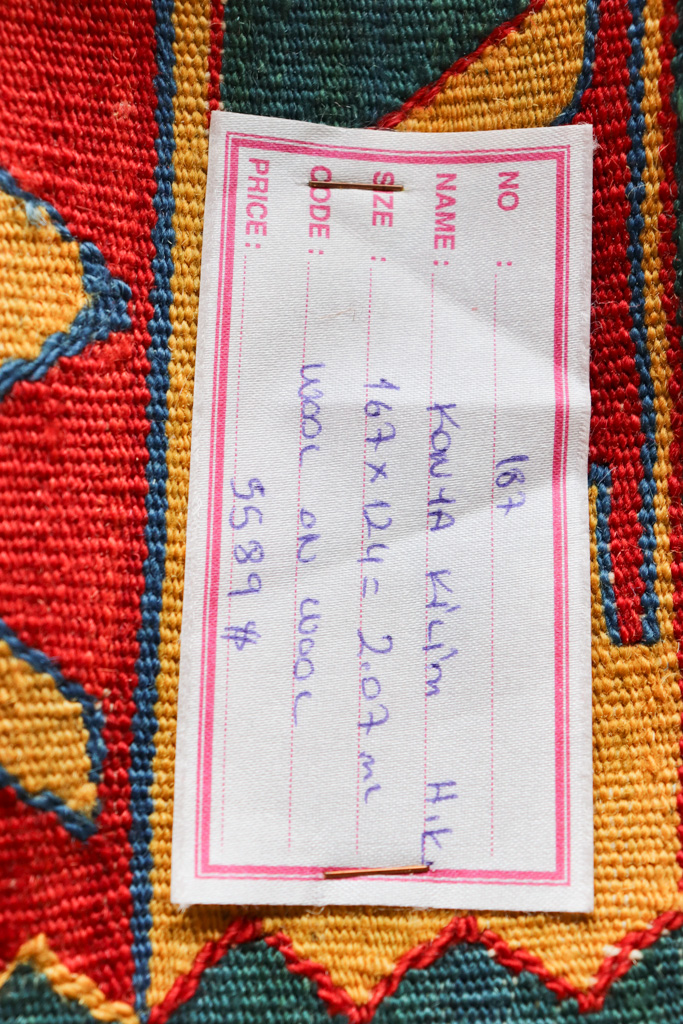 NO : 187
NAME : KONYA KiLiM HiK.
SIZE : 167 x 124 = 2.07 m2
CODE : WOOL ON WOOL
PRICE : 5589 $